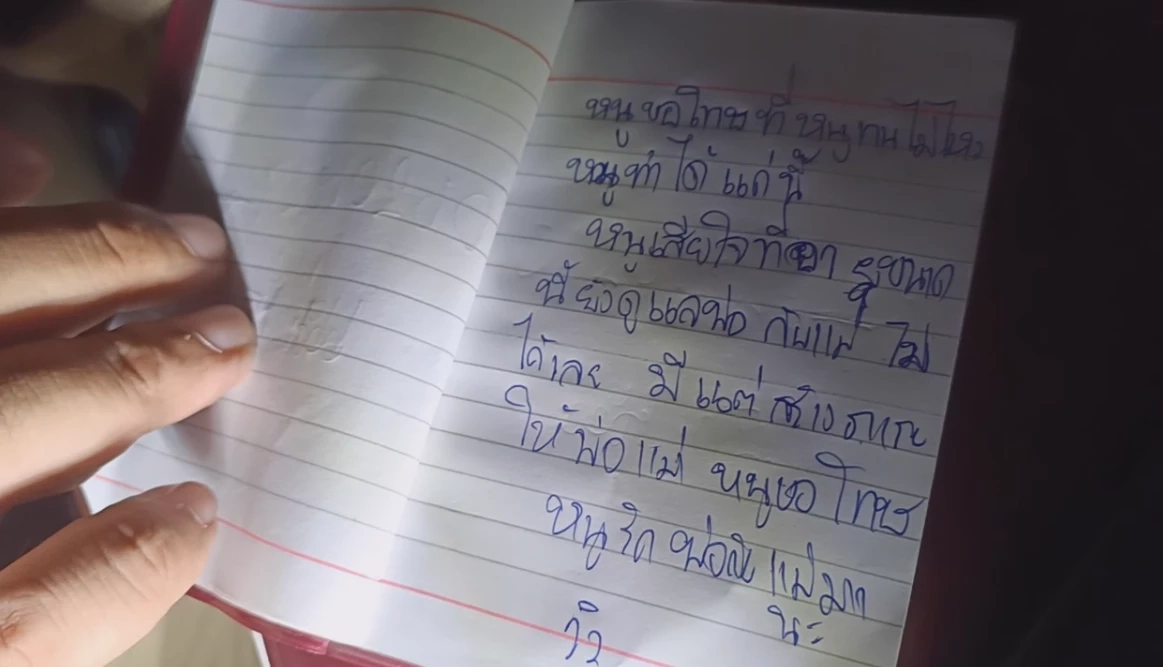 หนูขอโทษที่หนูทนไม่ไหว
หนูทำได้แค่นี้
หนูเสียใจที่อายุขนาด
นี้ยังดูแลพ่อกับแม่ ไม่
ได้เลย มีแต่สร้างภาระ
ให้พ่อแม่ หนูขอโทษ
หนูรักพ่อกับแม่มาก
นะ
วิว